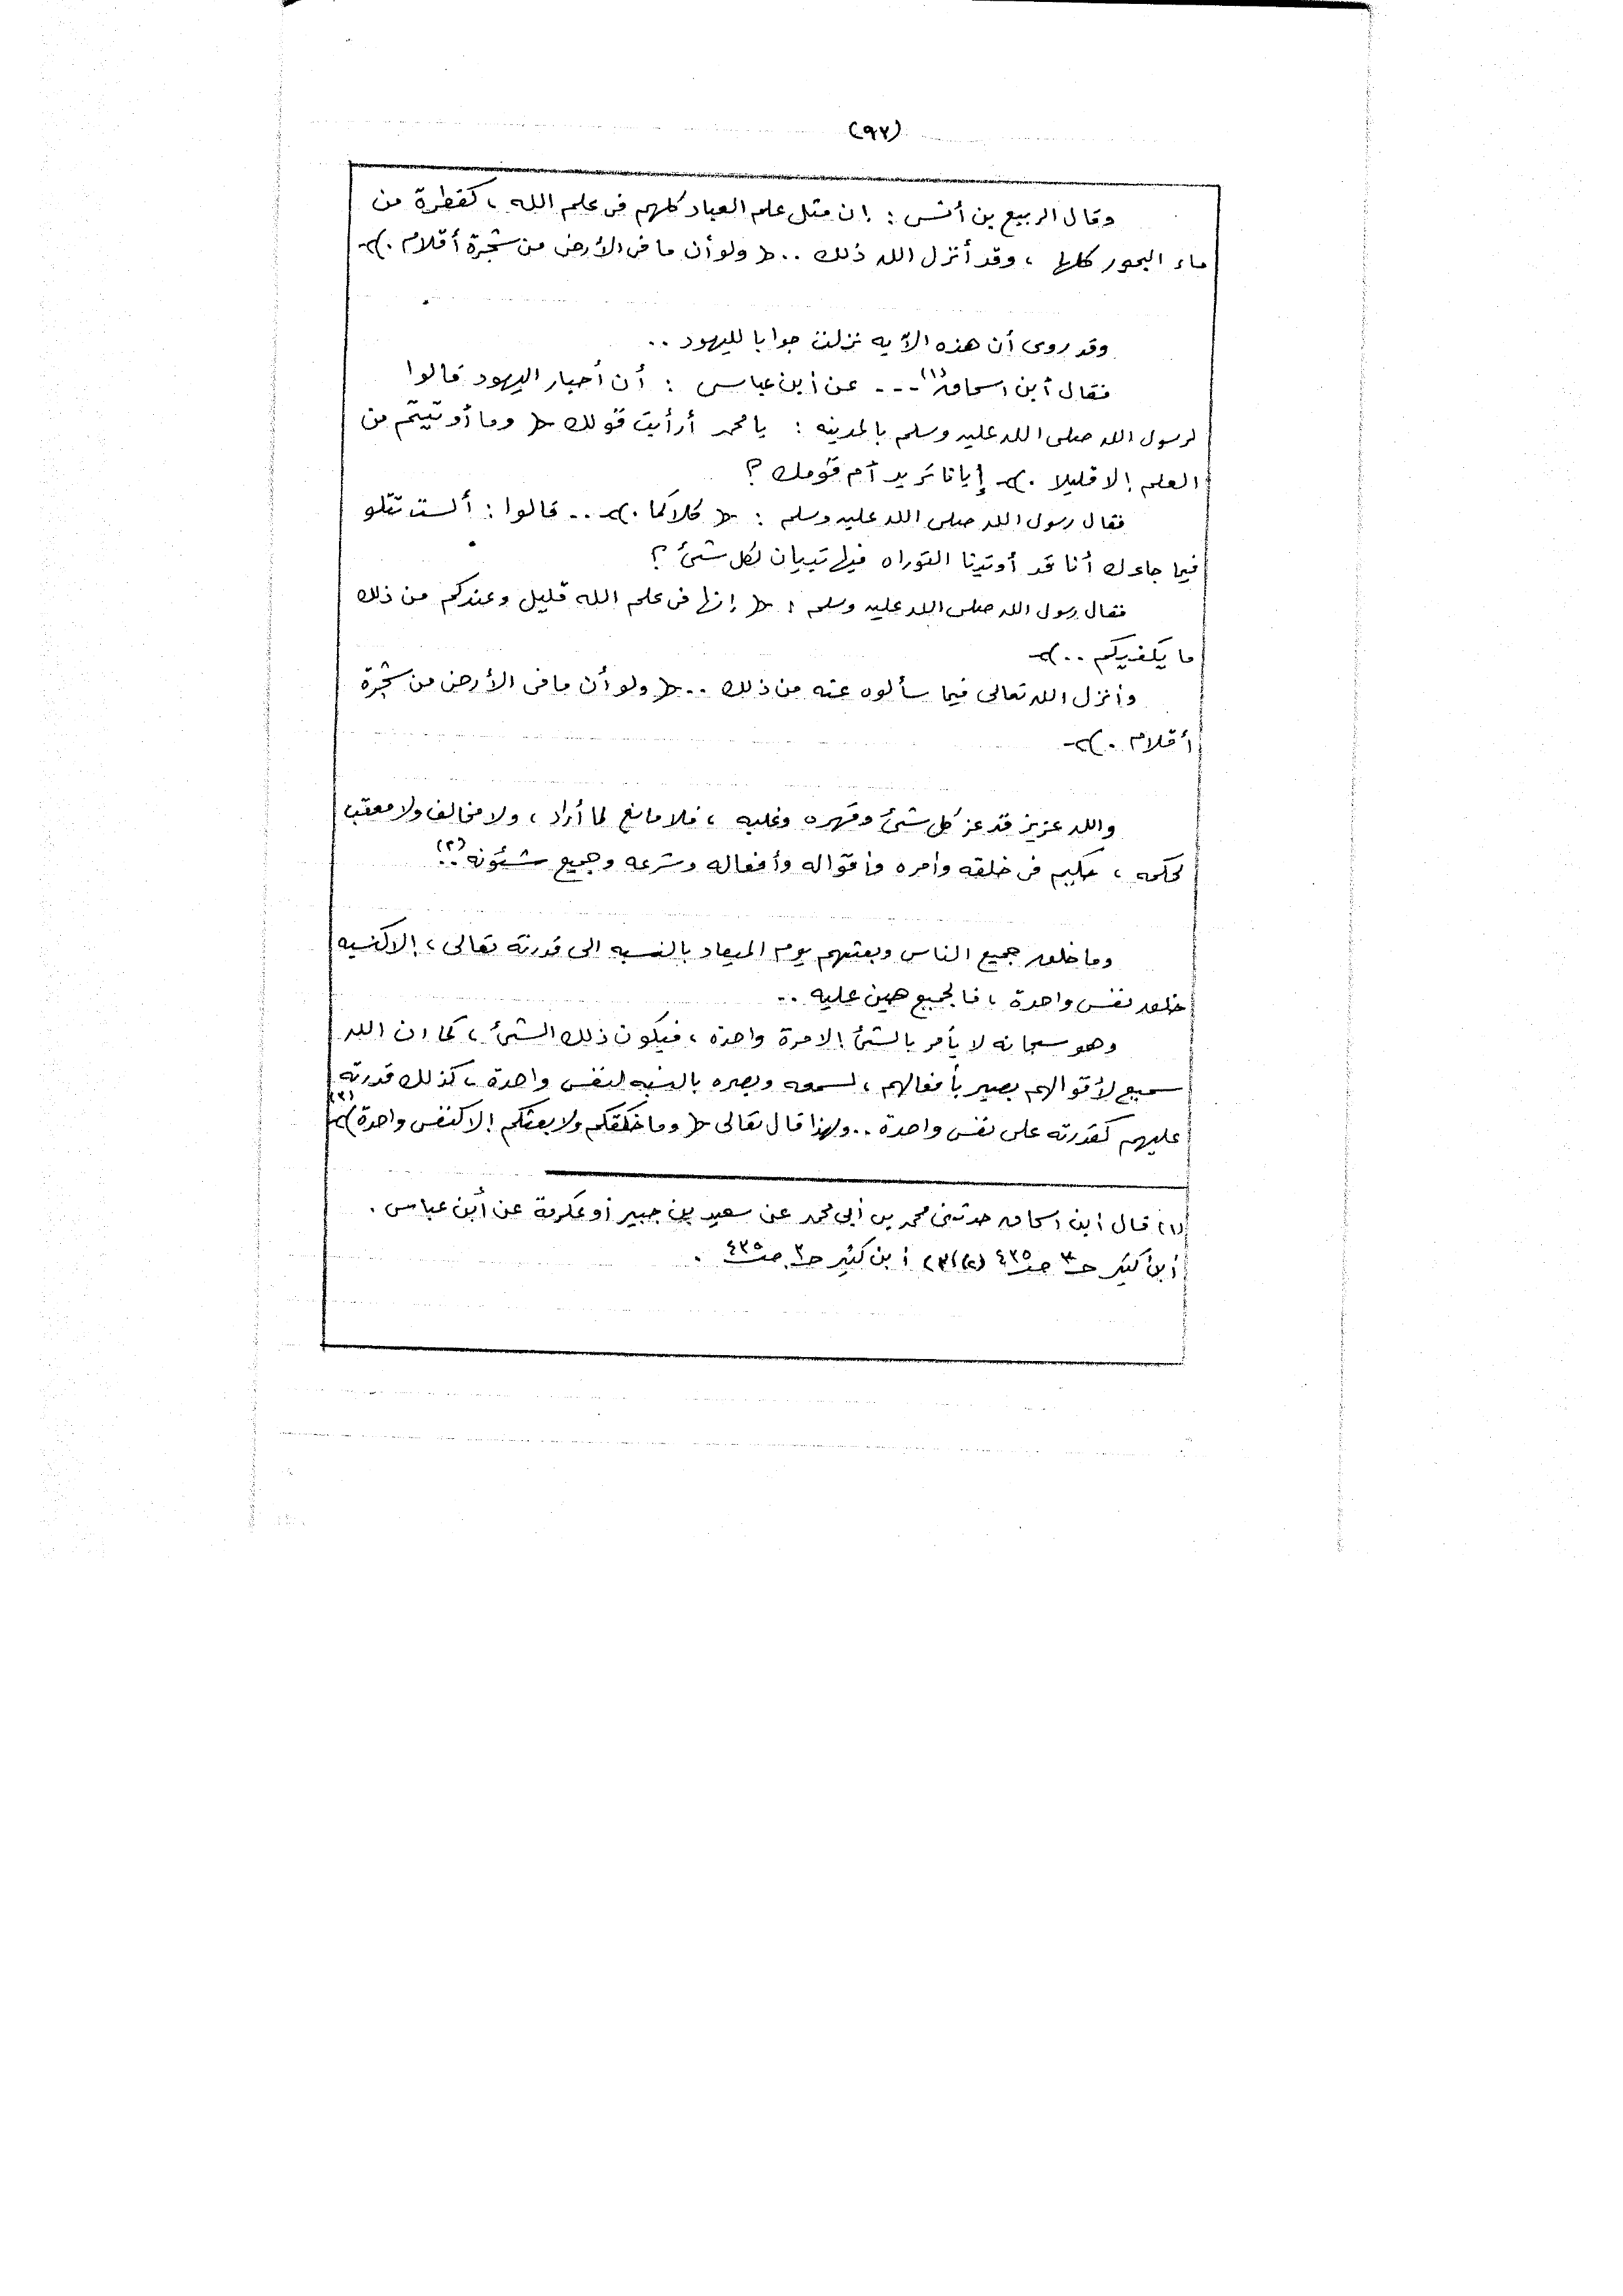 (٩٧)
وقال الربيع بن أنس : إن مثل علم العباد كلهم فى علم الله ، كقطرة من
ماء البحور كلها ، وقد أنزل الله ذلك .. ﴿ ولو أن ما فى الأرض من شجرة أقلام . ﴾
وقد روى أن هذه الآيه نزلت جوابا لليهود ..
فقال أبن اسحاق (١) --- عن أبن عباس : أن أحبار اليهود قالوا
لرسول الله صلى الله عليه وسلم بالمدينه : يا محمد أرأيت قولك ﴿ وما أوتيتم من
العلم إلا قليلا . ﴾ إيانا تريد أم قومك ؟
فقال رسول الله صلى الله عليه وسلم : ﴿ كلاكما . ﴾ .. قالوا : ألست تتلو
فيما جاءك أنا قد أوتينا التوراه فيها تبيان لكل شئ ؟
فقال رسول الله صلى الله عليه وسلم : ﴿ إنها فى علم الله قليل وعندكم من ذلك
ما يكفيكم .. ﴾
وأنزل الله تعالى فيما سألوه عنه من ذلك .. ﴿ ولو أن ما فى الأرض من شجرة
أقلام . ﴾
والله عزيز قد عز كل شئ وقهره وغلبه ، فلا مانع لما أراد ، ولا مخالف ولا معقب
لحكمه ، حكيم فى خلقه وأمره وأقواله وأفعاله وشرعه وجميع شئونه .. (٢)
وما خلق جميع الناس وبعثهم يوم الميعاد بالنسبه الى قدرته تعالى ، إلا كنسبه
خلق نفس واحدة ، فالجميع هين عليه ..
وهو سبحانه لا يأمر بالشئ إلا مرة واحدة ، فيكون ذلك الشئ ، كما ان الله
سميع لأقوالهم بصير بأفعالهم ، لسمعه وبصره بالنسبه لنفس واحدة ، كذلك قدرته
عليهم كقدرته على نفس واحدة .. ولهذا قال تعالى ﴿ وما خلقكم ولا بعثكم إلا كنفس واحدة ﴾ (٣)
(١) قال أبن اسحاق حدثنى محمد بن أبى محمد عن سعيد بن جبير أو عكرمة عن أبن عباس .
أبن كثير حـ٣ صـ٤٣٥ (٢)(٣) أبن كثير حـ٣ صـ٤٣٥ .